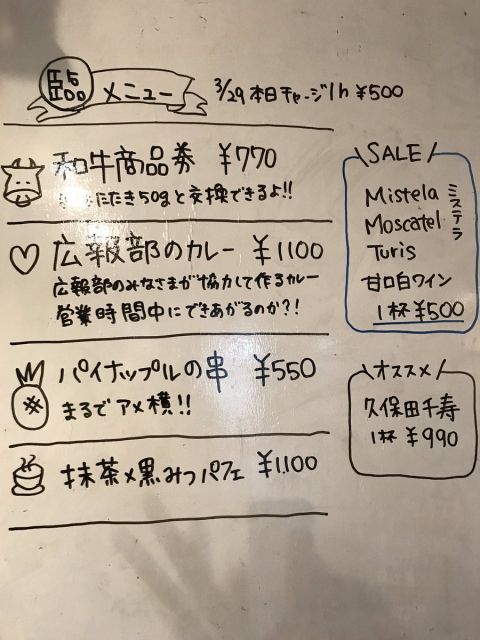 臨 メニュー 3/29 本日チャージ1h ¥500
和牛商品券 ¥770
たたき50gと交換できるよ!!
広報部のカレー ¥1100
広報部のみなさまが協力して作るカレー
営業時間中にできあがるのか?!
パイナップルの串 ¥550
まるでアメ横!!
抹茶×黒みつパフェ ¥1,100
\SALE/
Mistela ミステラ
Moscatel
Turis
甘口白ワイン
1杯¥500
\オススメ/
久保田千寿
1杯 ¥990